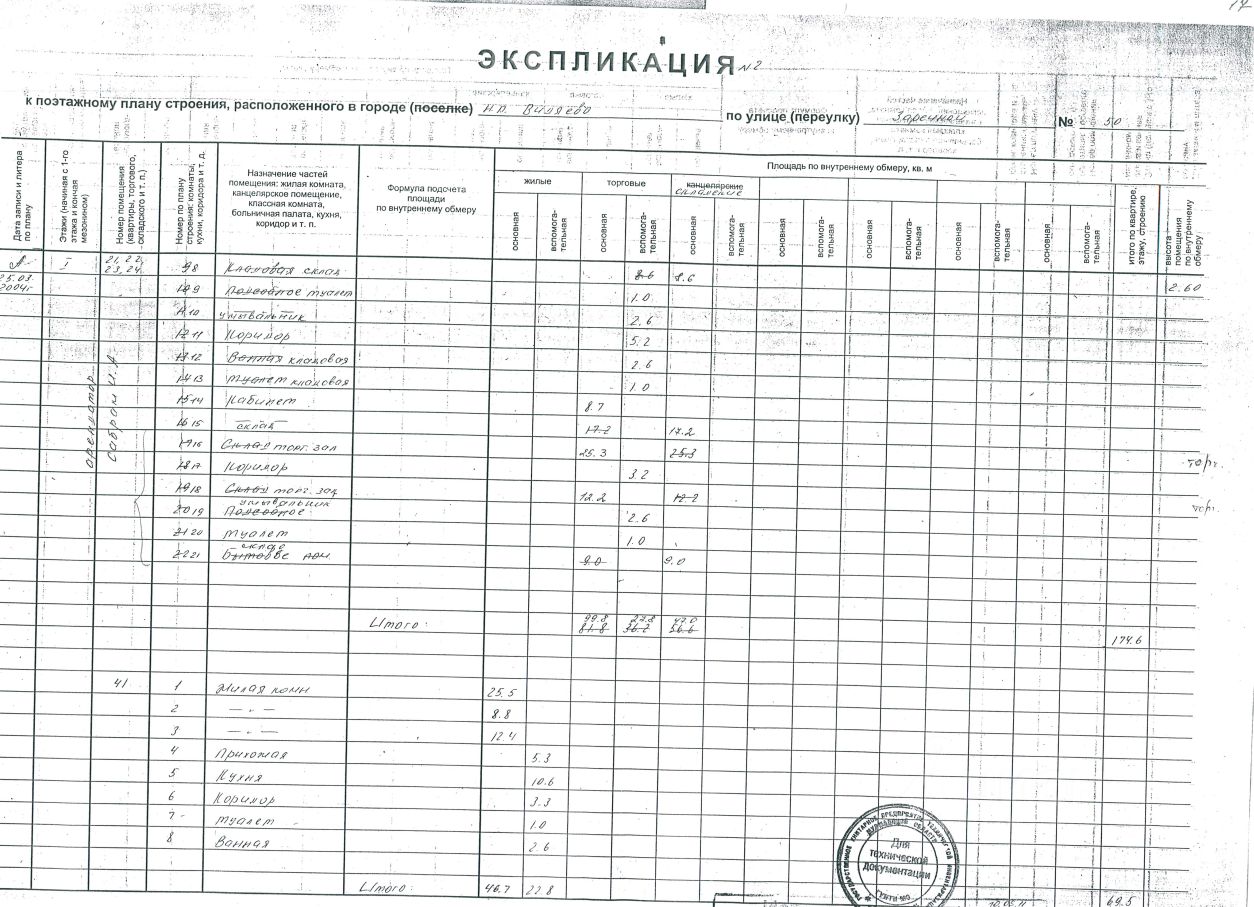 ЭКСПЛИКАЦИЯ №2
к поэтажному плану строения, расположенного в городе (поселке) н.п. Видяево по улице (переулку) Заречная № 50
Дата записи и литера по плану
Этажи (начиная с 1-го этажа и кончая мезонином)
Номер помещения (квартиры, торгового, складского и т. п.)
Номер по плану строения: комнаты, кухни, коридора и т. д.
Назначение частей помещения: жилая комната, канцелярское помещение, классная комната, больничная палата, кухня, коридор и т. п.
Формула подсчета площади по внутреннему обмеру
Площадь по внутреннему обмеру, кв. м
жилые торговые канцелярские
складские
основная вспомога-тельная основная вспомога-тельная основная вспомога-тельная основная вспомога-тельная основная вспомога-тельная основная вспомога-тельная основная вспомога-тельная
итого по квартире, этажу, строению
высота помещения по внутреннему обмеру
А I 21, 22, 23, 24 9 8 Кладовая склад 8.6 8.6
25.03.2004г 10 9 Подсобное туалет 1.0 2.60
11 10 умывальник 2.6
12 11 Коридор 5.2
13 12 Ванная кладовая 2.6
14 13 Туалет кладовая 1.0
15 14 Кабинет 8.7
16 15 склад 17.2 17.2
17 16 Склад торг. зал 25.3 25.3
18 17 Коридор 3.2 торг.
19 18 Склад торг. зал 12.2 12.2
умывальник
20 19 Подсобное 2.6 торг.
21 20 Туалет 1.0
склад
22 21 Бытовое пом. 9.0 9.0
арендатор
99.8 27.8 47.0
Итого: 81.8 36.2 56.6
174.6
41 1 Жилая комн 25.5
2 — „ — 8.8
3 — „ — 12.4
4 Прихожая 5.3
5 Кухня 10.6
6 Коридор 3.3
7 Туалет 1.0
8 Ванная 2.6
Итого: 46.7 22.8 69.5
Для
технической
документации